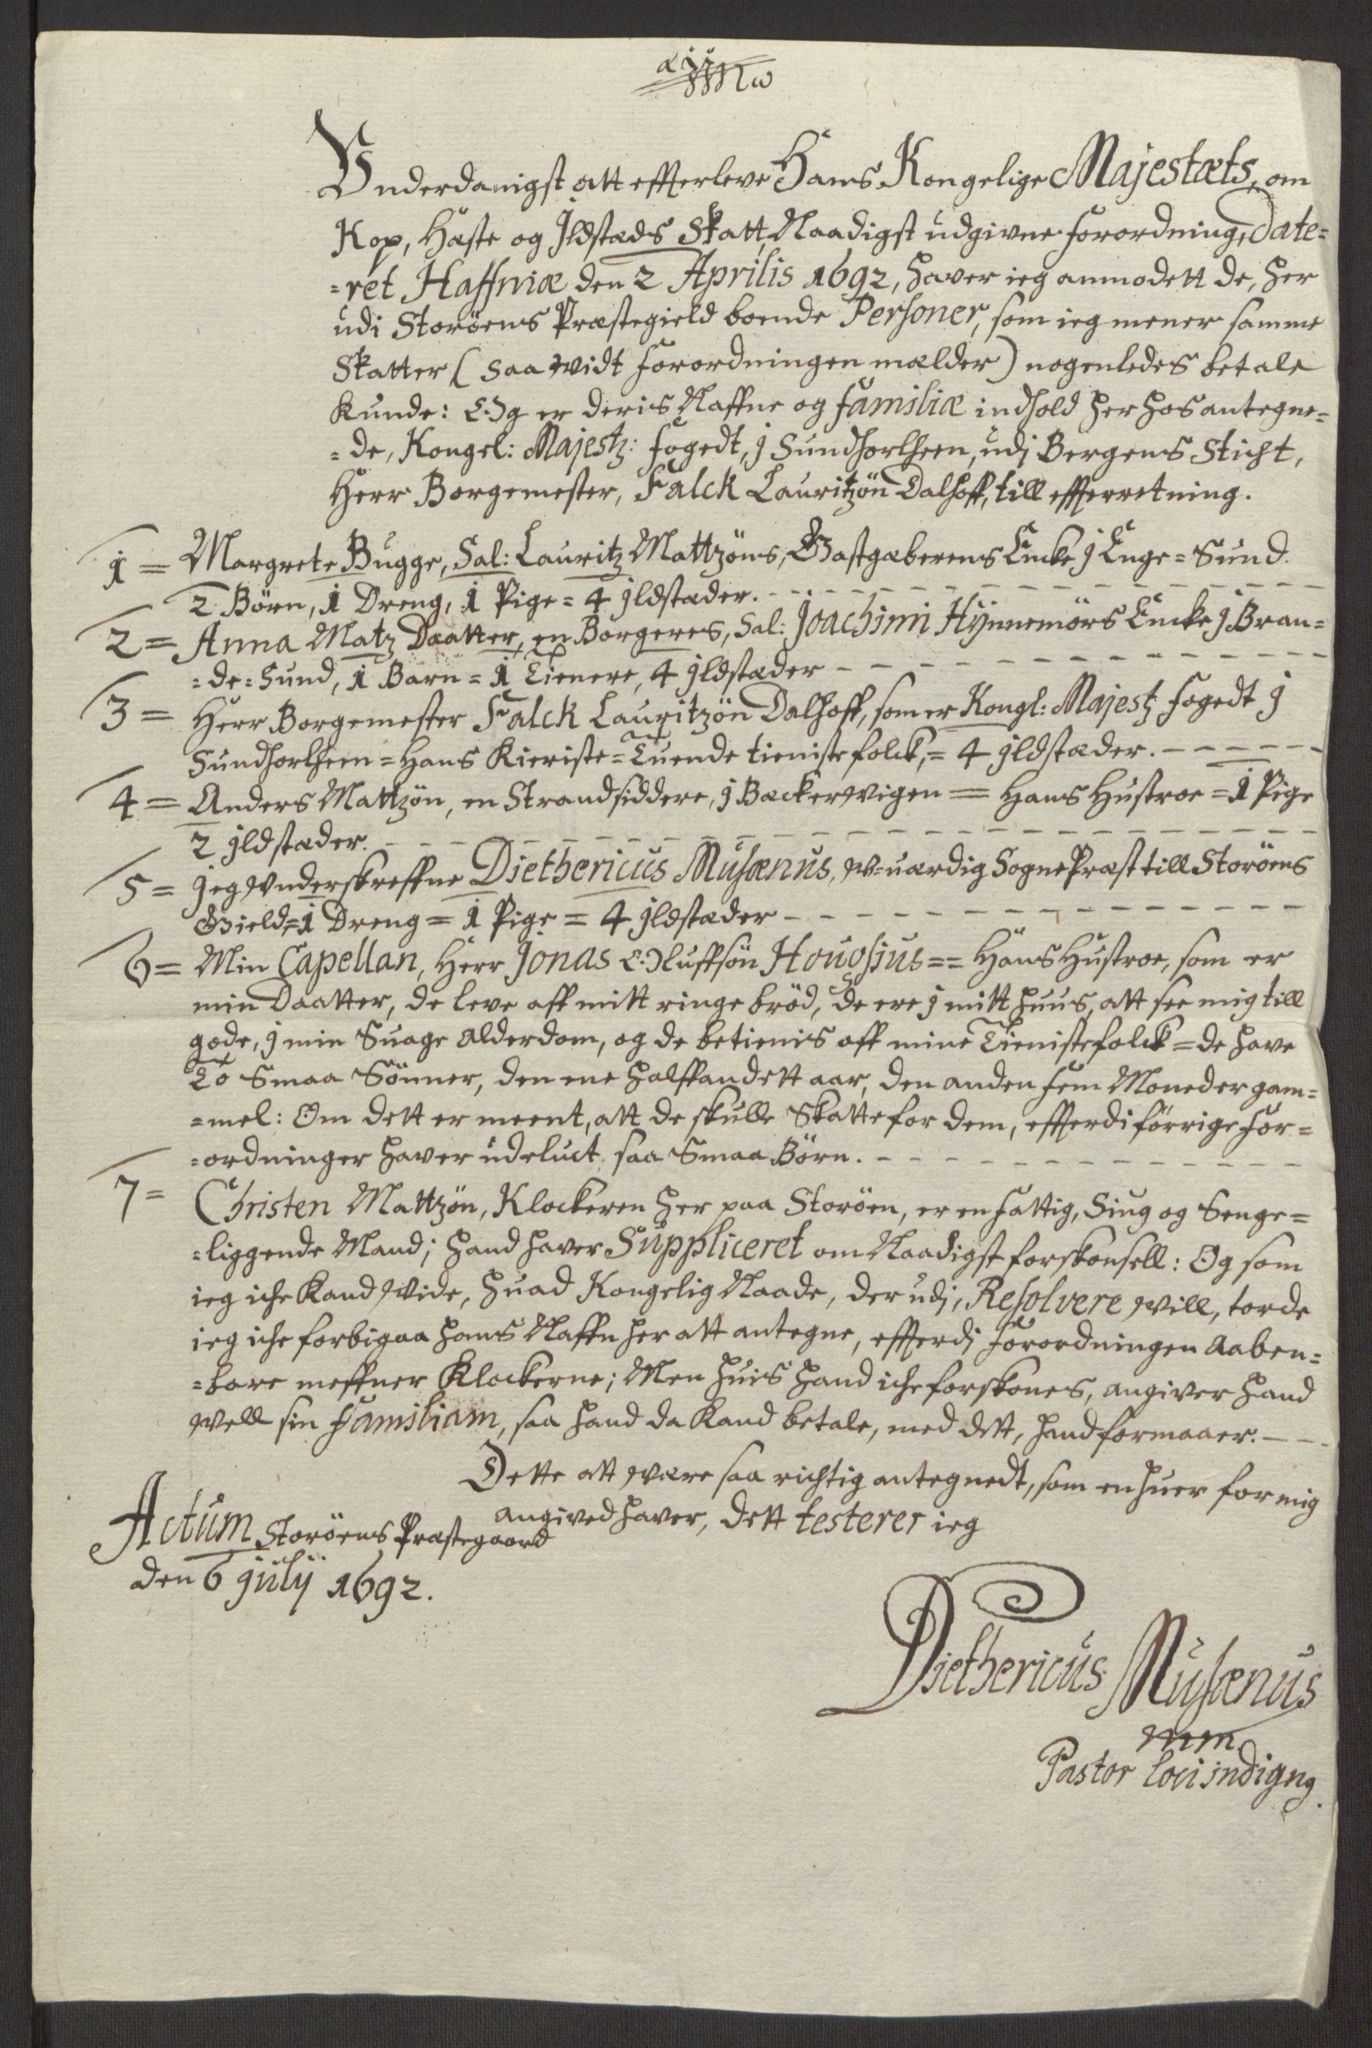 Vnderdanigst att effterleve Hans Kongelige Majestæts, om
Kop, Hæste og Jldstæds Skatt, Naadigst udgivne forordning, Date=
=ret Haffniæ den 2 Aprilis 1692, haver ieg anmodett de, her
udi Storöens Præstegield boende Personer, som ieg mener samme
Skatter (saa vidt forordningen mælder) nogenledes betale
kunde: Og er deris Naffne og familiæ indhold her hos antegne=
=de, Kongel: Majestz: fogedt, j Sundhorlheen, udj Bergens Sticht,
Herr Borgemester, Falck Lauritzön Dalhoff, till effterretning.
1 = Margrete Bugge, Sal: Lauritz Mattzöns, Gastgæberens Encke j Enge=Sund.
2 Börn, 1 Dreng, 1 Pige = 4 jldstæder.
2 = Anna Matz Daatter, en Borgeres, Sal: Joachimi Hÿnnemörs Encke j Bran=
=de=Sund, 1 Barn = 1 Tienere, 4 jldstæder
3 = Herr Borgemester Falck Lauritzön Dalhoff, som er Kongl: Majestz fogedt j
Sundhorlheen = Hans Kieriste = Tuende tieniste folck, = 4 jldstæder.
4 = Anders Mattzön, en Strandsiddere, j Backervigen = Hans Hustroe = 1 Pige
2 jldstæder.
5 = Jeg Vnderskreffne Diethericus Musænus, W=uærdig Sogne Præst till Storöens
Gield = 1 Dreng = 1 Pige = 4 jldstæder
6 = Min Capellan, Herr Jonas Oluffsön Houosius == Hans Hustroe, som er
min Daatter, de leve aff mitt ringe bröd, de ere j mitt huus, att see mig till
gode, j min Suage Alderdom, og de betienis aff mine Tienistefolck = de have
To Smaa Sönner, den ene halffandett aar, den anden fem Moneder gam=
=mel: Om dett er meent, att de skulle Skatte for dem, effterdi förrige for=
=ordninger haver udeluct saa Smaa Börn.
7 = Christen Mattzön, Klockeren her paa Storöen, er en fattig, Siug og Senge=
=liggende Mand; hand haver Suppliceret om Naadigst forskonsell: Og som
ieg iche kand vide, huad Kongelig Naade, der udj, Resolvere will, torde
ieg iche forbigaa hans Naffn her att antegne, effterdj forordningen aaben=
=bare neffner Klockerne; Men huis hand iche forskones, angiver hand
vell sin Familiam, saa hand da kand betale, med dett, hand formaaer.
Dette att være saa richtig antegnedt, som en huer for mig
angived haver, dett testerer ieg
Actum Storöens Præstegaard
den 6 julij 1692.
Diethericus Musænus
mm
Pastor loci indignq.